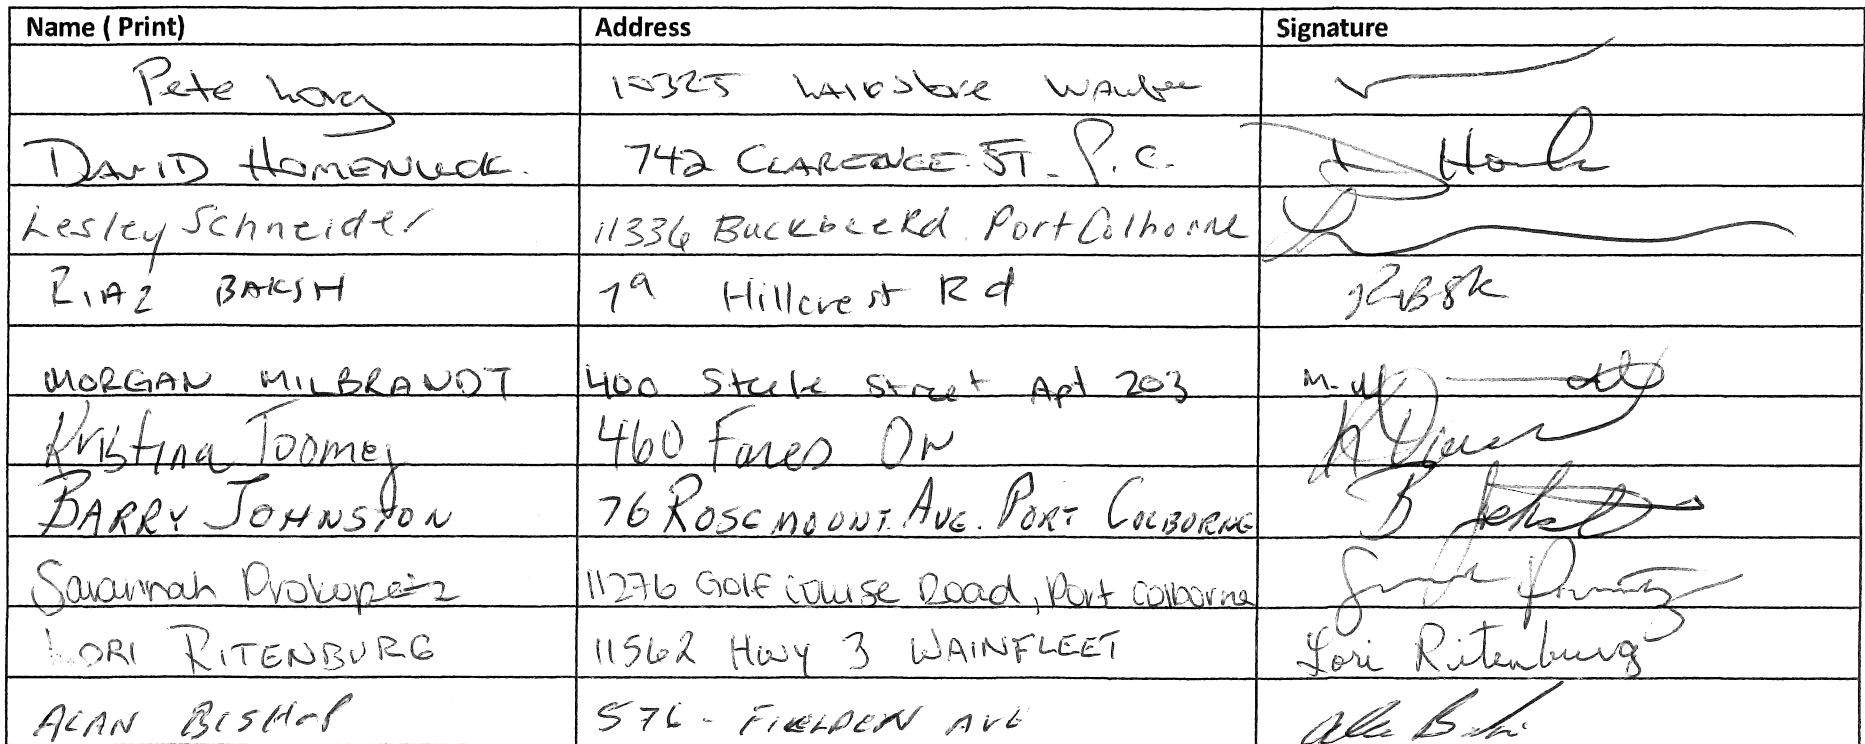 Name ( Print) Address Signature
Pete 10325
DAVID HOMENUCK. 742 CLARENCE ST. P.C. D Hom
Lesley Schneider 11336 Buckbee Rd. Port Colborne
RIAZ BAKSH 79 Hillcrest Rd
MORGAN MILBRANDT 400 Steele Street Apt 203
Kristina Toomey 460 Fares ON
BARRY JOHNSTON 76 ROSEMOUNT. AVE. PORT COLBORNE B
Savannah 11276 Golf course Road, Port Colborne
LORI RITENBURG 11562 HWY 3 WAINFLEET Lori Ritenburg
ALAN BISHOP 576 - FIELDEN AVE